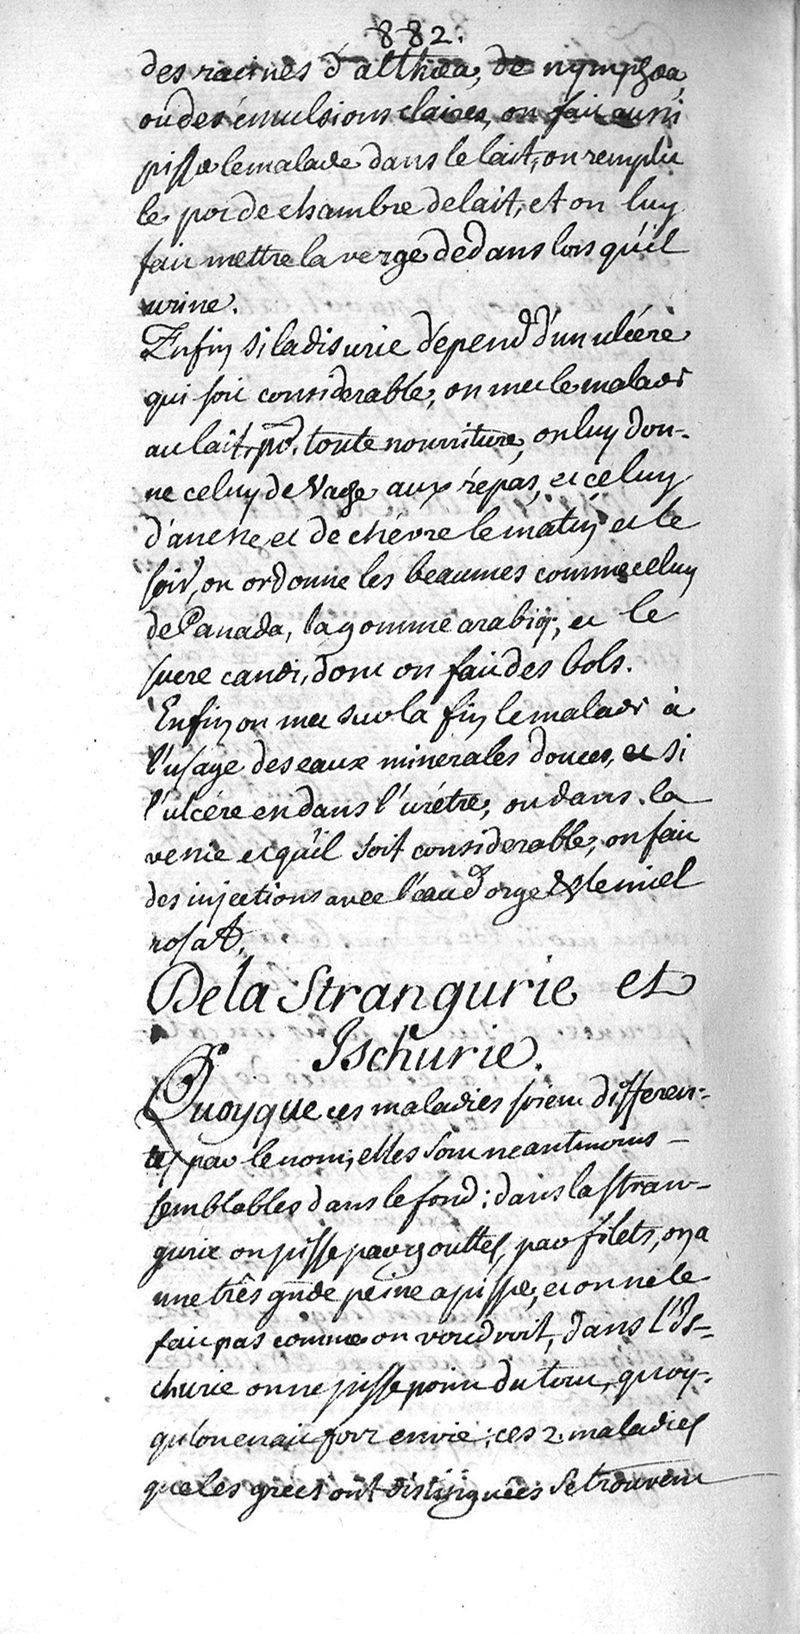 882.
des racines d'althœa, de nymphœa,
ou des émulsions claires, on fait aussi
pisser le malade dans le lait, on remplit
le pot de chambre de lait, et on luy
fait mettre la verge dedans lors qu'il
urine.
Enfin si la disurie dépend d'un ulcére
qui soit considerable, on met le malade
au lait, pr. toute nourriture, on luy don-
ne celuy de Vache aux répas, et celuy
d'anesse et de chévre le matin et le
soir, on ordonne les beaumes comme celuy
de Canada, la gomme arabiq; et le
sucre candi, dont on fait des bols.
Enfin on met sur la fin le malade à
l'usage des eaux minerales douces, et si
l'ulcére en dans l'urétre, ou dans la
vessie et qu'il soit considerable, on fait
des injections avec l'eau d'orge & le miel
rosat.
De la Strangurie et
Ischurie.
Quoyque ces maladies soient differen-
tes par le nom, elles sont neantmoins
semblables dans le fond: dans la stran-
gurie on pisse par gouttes, par filets, on a
une très gnde peine a pisser, et on ne le
fait pas comme on voudroit, dans l'Is-
churie on ne pisse point du tout, quoy-
qu'on en ait fort envie; ces 2 maladies
que les grecs ont distinguées se trouvent